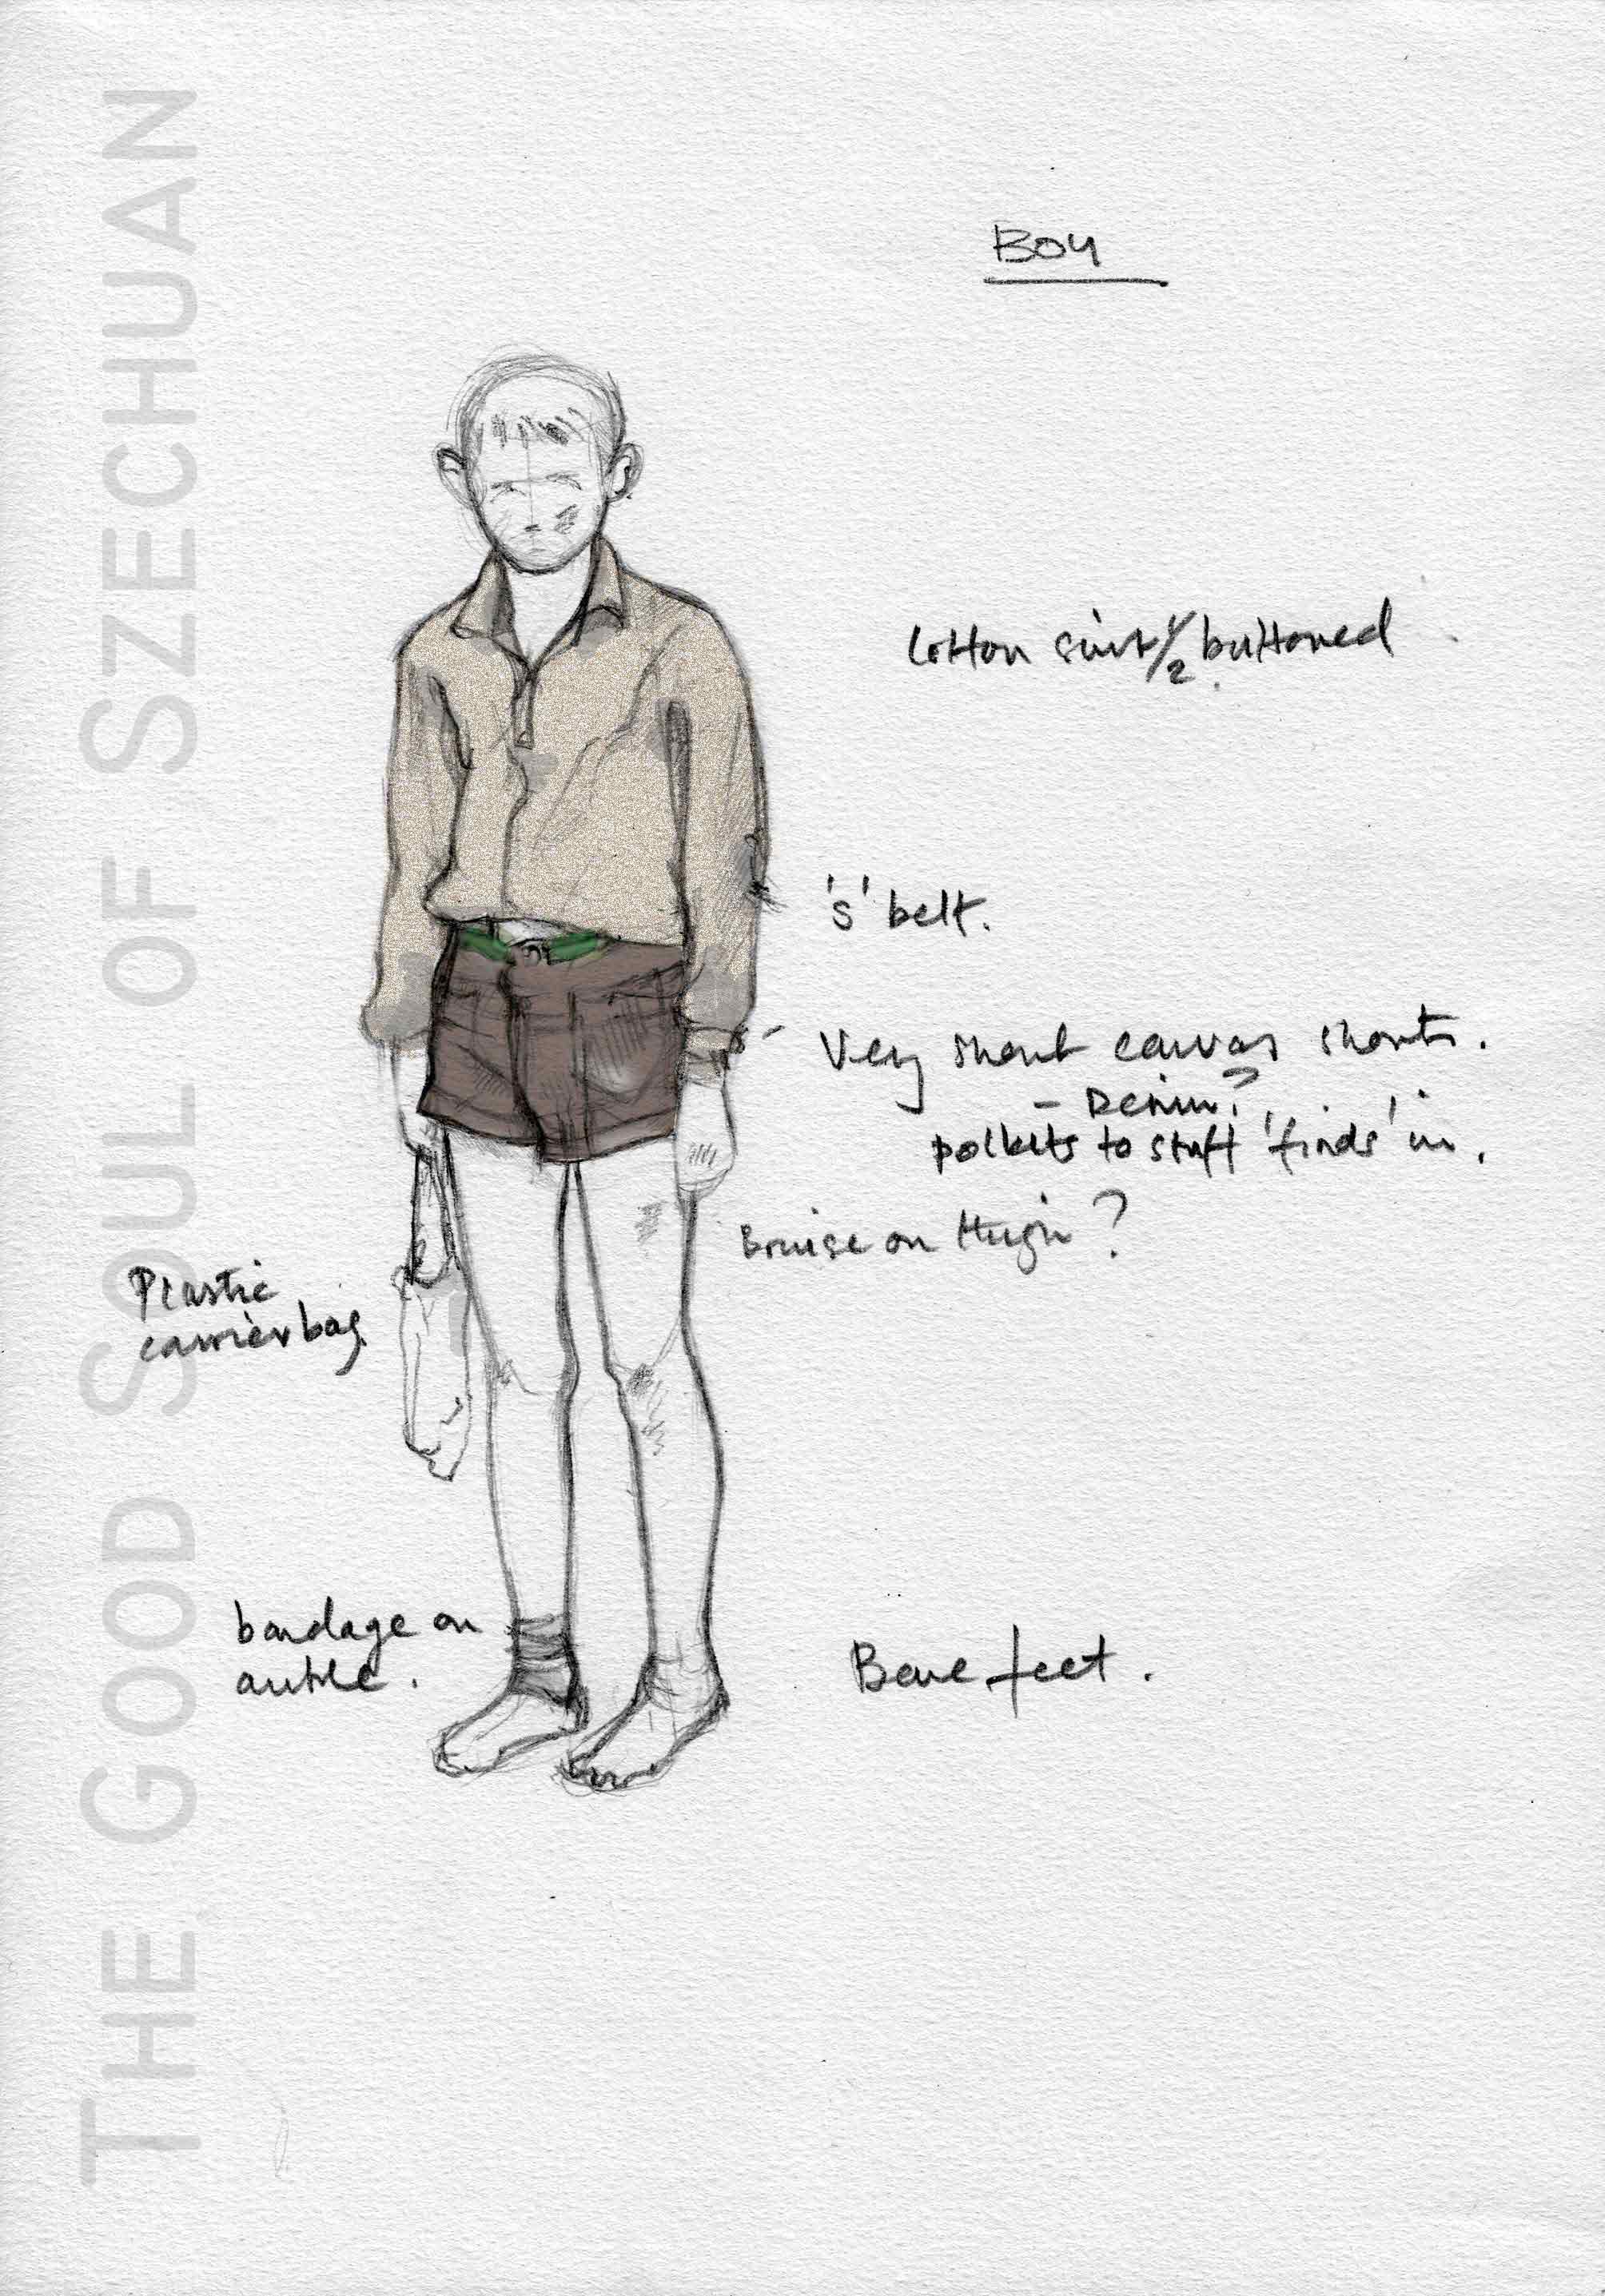 THE GOOD SOUL OF SZECHUAN
BOY
Cotton shirt 1/2 buttoned
'S' belt.
Very short canvas shorts.
- Denim?
pockets to stuff 'finds' in.
Bruise on thigh?
Plastic
carrier bag
bandage on
ankle.
Bare feet.